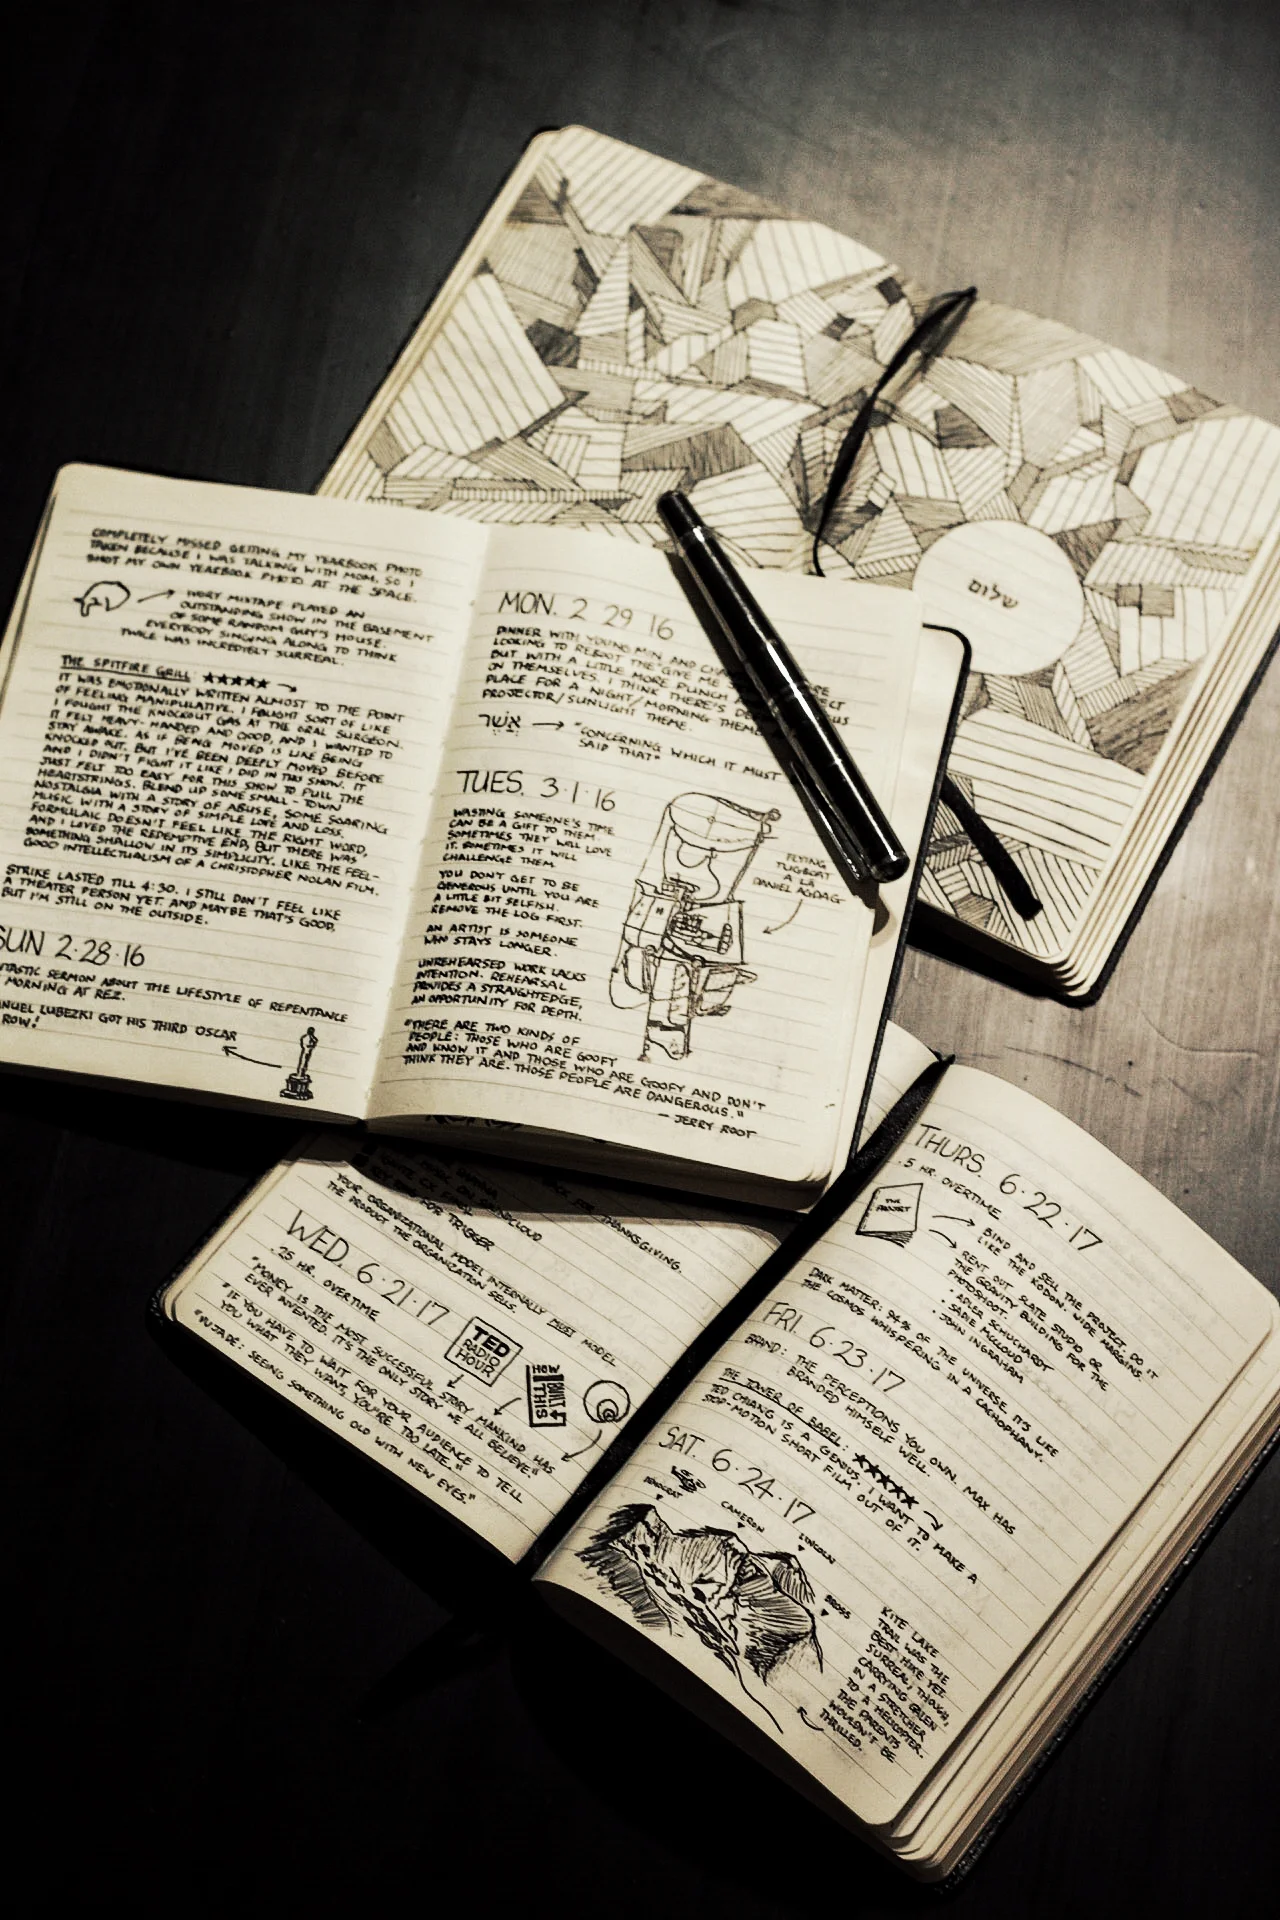 COMPLETELY MISSED GETTING MY YEARBOOK PHOTO
TAKEN BECAUSE I WAS TALKING WITH MOM. SO I
SHOT MY OWN YEARBOOK PHOTO AT THE SPACE.
IVORY MIXTAPE PLAYED AN
OUTSTANDING SHOW IN THE BASEMENT
OF SOME RANDOM GUY'S HOUSE.
EVERYBODY SINGING ALONG TO THINK
TWICE WAS INCREDIBLY SURREAL.
THE SPITFIRE GRILL ★★★★★
IT WAS EMOTIONALLY WRITTEN ALMOST TO THE POINT
OF FEELING MANIPULATIVE. I FOUGHT SORT OF LIKE
I FOUGHT THE KNOCKOUT GAS AT THE ORAL SURGEON.
IT FELT HEAVY-HANDED AND GOOD, AND I WANTED TO
STAY AWAKE. AS IF BEING MOVED IS LIKE BEING
KNOCKED OUT. BUT I'VE BEEN DEEPLY MOVED BEFORE
AND I DIDN'T FIGHT IT LIKE I DID IN THIS SHOW. IT
JUST FELT TOO EASY FOR THIS SHOW TO PULL THE
HEARTSTRINGS. BLEND UP SOME SMALL-TOWN
NOSTALGIA WITH A STORY OF ABUSE, SOME SOARING
MUSIC WITH A STORY OF SIMPLE LOVE AND LOSS.
FORMULAIC DOESN'T FEEL LIKE THE RIGHT WORD,
AND I LOVED THE REDEMPTIVE END, BUT THERE WAS
SOMETHING SHALLOW IN ITS SIMPLICITY. LIKE THE FEEL-
GOOD INTELLECTUALISM OF A CHRISTOPHER NOLAN FILM.
STRIKE LASTED TILL 4:30. I STILL DON'T FEEL LIKE
A THEATER PERSON YET. AND MAYBE THAT'S GOOD,
BUT I'M STILL ON THE OUTSIDE.
SUN 2·28·16
TASTIC SERMON ABOUT THE LIFESTYLE OF REPENTANCE
MORNING AT REZ.
NUEL LUBEZKI GOT HIS THIRD OSCAR
ROW!
MON. 2 29 16
DINNER WITH YOUNG MIN AND
LOOKING TO REBOOT THE "GIVE ME
BUT WITH A LITTLE MORE PUNCH
ON THEMSELVES. I THINK THERE'S
PLACE FOR A NIGHT/MORNING THEME
PROJECTOR/SUNLIGHT THEME.
אֲשֶׁר "CONCERNING WHICH IT MUST
SAID THAT"
TUES. 3·1·16
WASTING SOMEONE'S TIME
CAN BE A GIFT TO THEM.
SOMETIMES THEY WILL LOVE
IT. SOMETIMES IT WILL
CHALLENGE THEM.
YOU DON'T GET TO BE
GENEROUS UNTIL YOU ARE
A LITTLE BIT SELFISH.
REMOVE THE LOG FIRST.
AN ARTIST IS SOMEONE
WHO STAYS LONGER.
UNREHEARSED WORK LACKS
INTENTION. REHEARSAL
PROVIDES A STRAIGHTEDGE,
AN OPPORTUNITY FOR DEPTH.
"THERE ARE TWO KINDS OF
PEOPLE: THOSE WHO ARE GOOFY
AND KNOW IT AND THOSE WHO ARE GOOFY AND DON'T
THINK THEY ARE. THOSE PEOPLE ARE DANGEROUS."
— JERRY ROOT
FLYING
TUGBOAT
A LA
DANIEL AGDAG
שלום
FOR THANKSGIVING.
ON SOUNDCLOUD
FOR TRIGGER
YOUR ORGANIZATIONAL MODEL INTERNALLY MUST MODEL
THE PRODUCT THE ORGANIZATION SELLS.
WED. 6·21·17
.25 HR. OVERTIME
"MONEY IS THE MOST SUCCESSFUL STORY MANKIND HAS
EVER INVENTED. IT'S THE ONLY STORY WE ALL BELIEVE."
"IF YOU HAVE TO WAIT FOR YOUR AUDIENCE TO TELL
YOU WHAT THEY WANT, YOU'RE TOO LATE."
"VUJADÉ: SEEING SOMETHING OLD WITH NEW EYES."
TED
RADIO
HOUR
HOW
I BUILT
THIS
THURS. 6·22·17
.5 HR. OVERTIME
THE
PROJECT
BIND AND SELL THE PROJECT. DO IT
LIKE THE KODON. WIDE MARGINS.
RENT OUT SLATE STUDIO OR
THE GRAVITY BUILDING FOR THE
PHOTOSHOOT.
· ADLER SCHUCHARDT
· SADIE MCCLOUD
· JOHN INGRAHAM
DARK MATTER: 94% OF THE UNIVERSE. IT'S LIKE
THE COSMOS WHISPERING IN A CACHOPHANY.
FRI 6·23·17
BRAND: THE PERCEPTIONS YOU OWN. MAX HAS
BRANDED HIMSELF WELL.
THE TOWER OF BABEL: ★★★★★
TED CHIANG IS A GENIUS. I WANT TO MAKE A
STOP-MOTION SHORT FILM OUT OF IT.
SAT. 6·24·17
DEMOCRAT
CAMERON
LINCOLN
BROSS
KITE LAKE
TRAIL WAS THE
BEST HIKE YET.
SURREAL, THOUGH,
CARRYING GALEN
IN A STRETCHER
TO A HELICOPTER.
THE PARENTS
WOULDN'T BE
THRILLED.